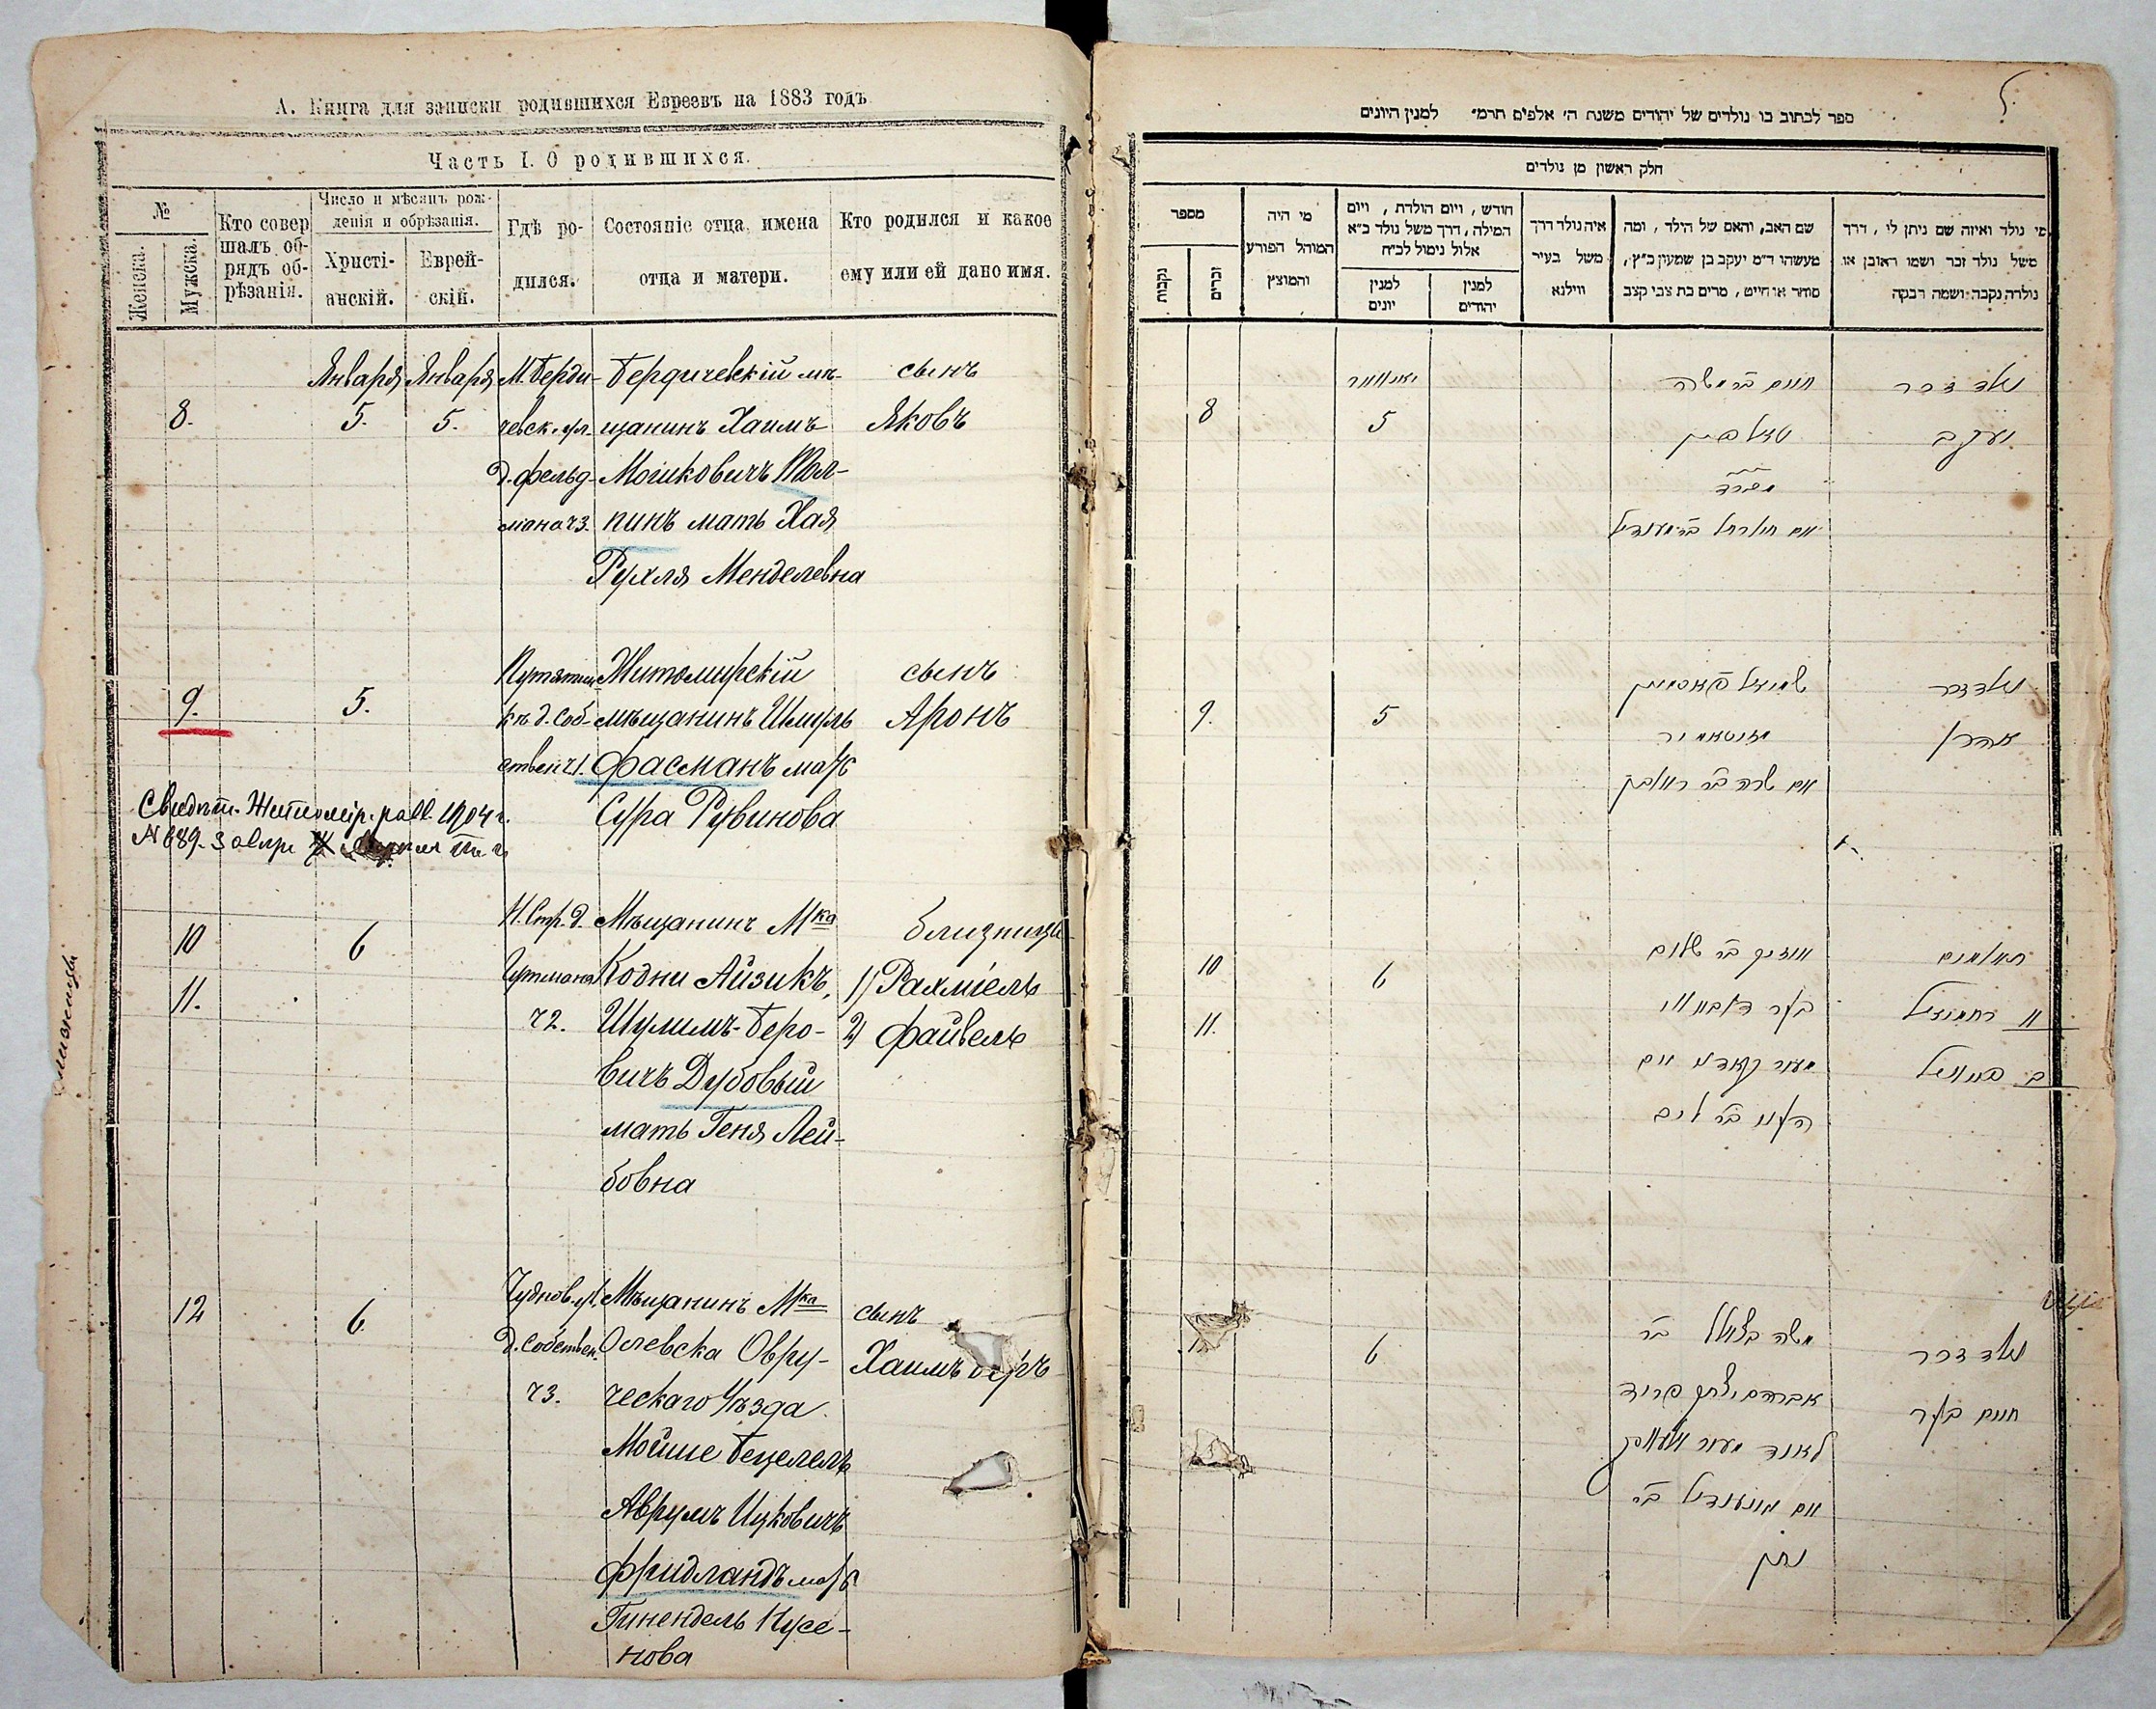 А. Книга для записки родившихся Евреевъ на 1883 годъ
Часть I. О родившихся.
№
Женска.
Мужска.
Кто совер
шалъ об-
рядъ об-
рѣзанія.
Число и мѣсяцъ рож-
денія и обрѣзанія.
Христі-
анскій.
Еврей-
скій.
Гдѣ ро-
дился.
Состояніе отца, имена
отца и матери.
Кто родился и какое
ему или ей дано имя.
8.
Января
5.
Января
5.
М. Берди-
чевск. ул.
д. Фельд-
мана ч3.
Бердичевскій мѣ-
щанинъ Хаимъ
Мошковичъ Тол-
пинъ мать Хая
Рухля Менделевна
сынъ
Яковъ
9.
5.
д. Соб-
ствен ч1.
Житомирскій
мѣщанинъ Шмуль
Фасманъ мать
Сура Рувинова
сынъ
Аронъ
Свидѣт. Житомір. равв. 1904 г.
№ 689.
10
11.
6
Н. Стр. д.
Гутмана
ч2.
Мѣщанинъ Мка
Кодни Айзикъ,
Шулимъ-Беро-
вичъ Дубовый
мать Геня Лей-
бовна
близнецы
1) Рахміель
2) Файвель
близнецы
12
6
Чуднов. ул.
д. Собствен.
ч3.
Мѣщанинъ Мка
Олевска Овру-
ческаго Уѣзда
Мойше Бецелель
Аврумъ Ицковичъ
Фридландъ мать
Гинендель Нусе-
нова
сынъ
Хаимъ Беръ
ספר לכתוב בו נולדים של יהודים משנת ה' אלפים תרמ" למנין היונים
חלק ראשון מן נולדים
מספר
נקבות
זכרים
מי היה
המוהל הפורע
והמוצץ
חודש, ויום הולדת, ויום
המילה, דרך משל נולד כ"א
אלול נימול לכ"ח
למנין
יונים
למנין
יהודים
איה נולד דרך
משל בעיר
ווילנא
שם האב, והאם של הילד, ומה
מעשהו ד"מ יעקב בן שמעון כ"ץ,
סוחר או חייט, מרים בת צבי קצב
מי נולד ואיזה שם ניתן לו, דרך
משל נולד זכר ושמו ראובן או
נולדה נקבה ושמה רבקה
8
יאנוואר
5
חיים בר משה
טאלפין
נולד זכר
יעקב
9.
5
שמואל פאסמאן
זיטאמיר
ואם שרה בר ראובן
נולד זכר
אהרן
10
11.
6
אייזיק בר שלום
בער דאבאווי
תאומים
א רחמיאל
ב פייוויל
6
משה בצלאל בר
אברהם יצחק פריד
לאנד
נתן
נולד זכר
חיים בער